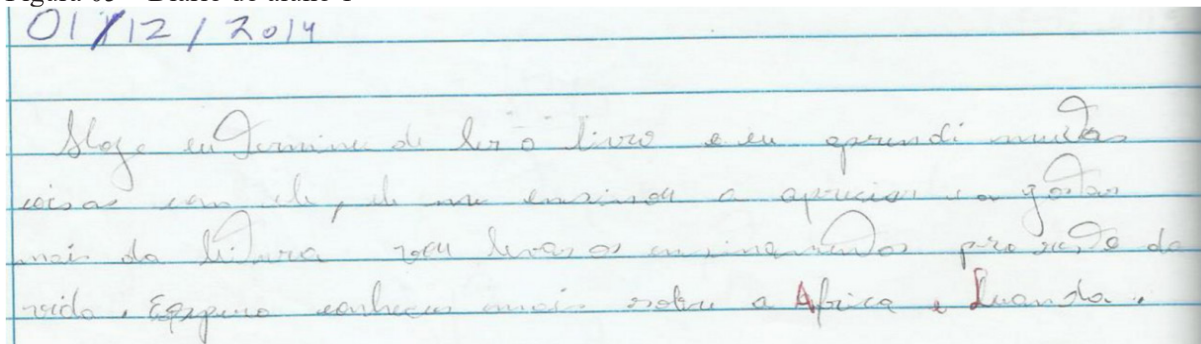 01/12/2014
Hoje eu termine de ler o livro e eu aprendi muitas
coisas com ele, ele me ensinou a apreciar e a gostar
mais da litura vou levar os ensinamentos pro resto da
vida. Espero conhecer mais sobre a Africa e Luanda.